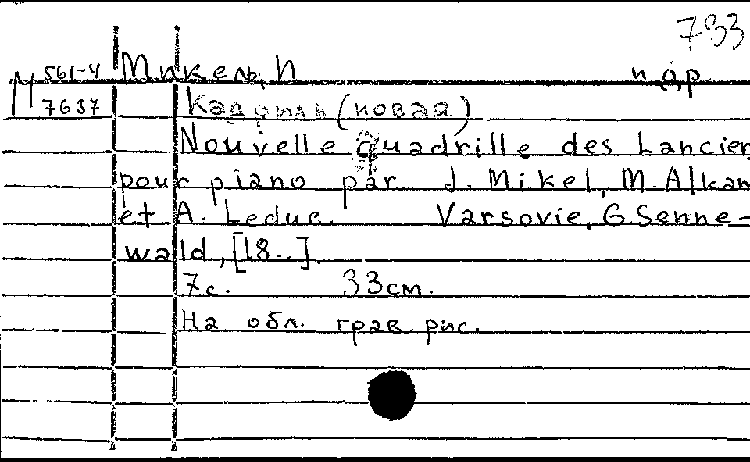 733
М 561-4 Микель, И и др
7637 Кадриль (новая)
Nouvelle quadrille des Lancier
pour piano par J. Mikel, M. Alkan
et A. Leduc. Varsovie, G. Senne-
wald, [18..].
7с. 33см.
На обл. грав. рис.